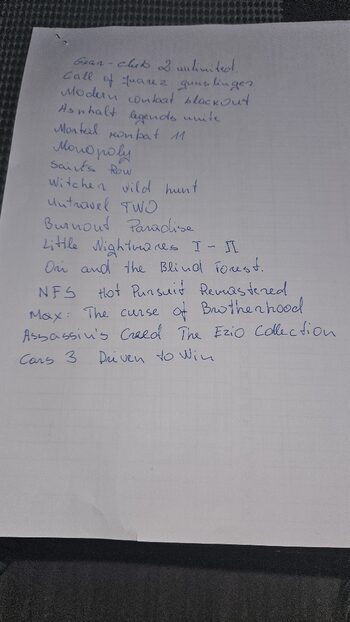 Gear-club 2 unlimited
Call of juarez gunslinger
Modern combat blackout
Asphalt legends unite
Mortal kombat 11
Monopoly
Saints Row
Witcher vild hunt
Untravel TWO
Burnout Paradise
Little Nightmares I-II
Ori and the Blind Forest.
NFS Hot Pursuit Remastered
Max: The curse of Brotherhood
Assassin's Creed The Ezio Collection
Cars 3 Driven to Win